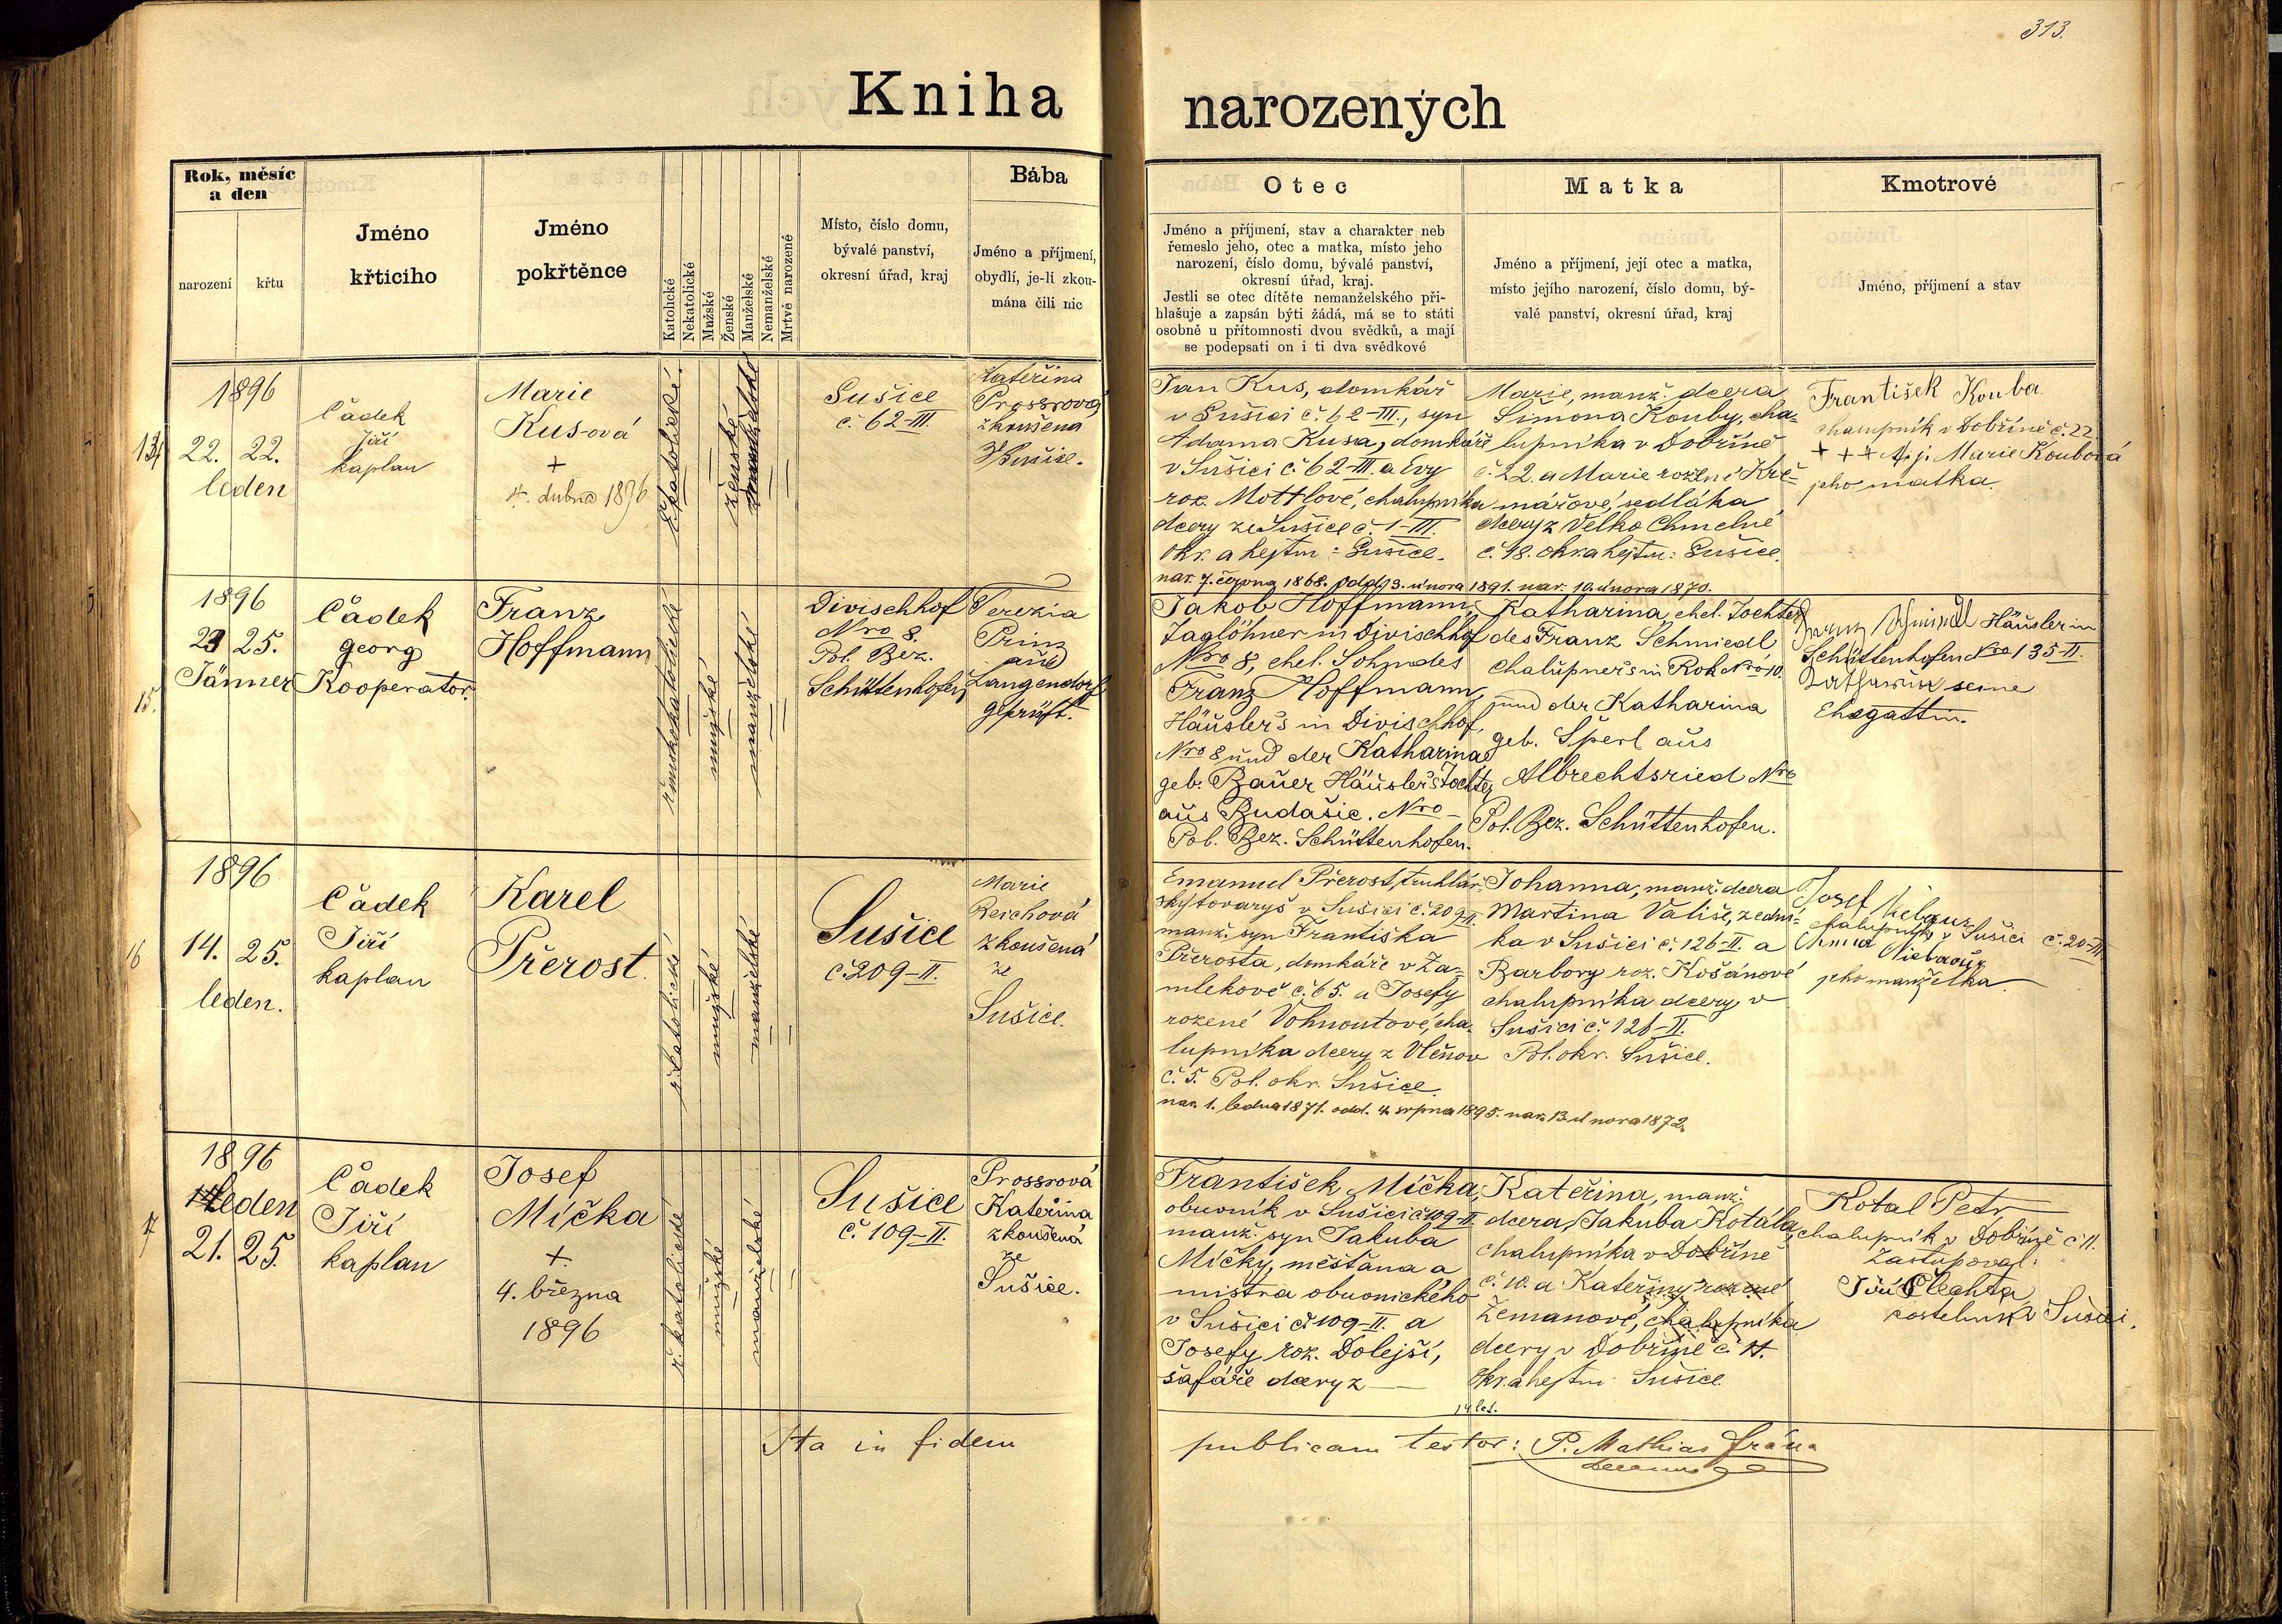 313.
Kniha narozených
Rok, měsíc
a den
narození
křtu
Jméno
křticího
Jméno
pokřtěnce
Katolické
Nekatolické
Mužské
Ženské
Manželské
Nemanželské
Mrtvě narozené
Místo, číslo domu,
bývalé panství,
okresní úřad, kraj
Bába
Jméno a příjmení,
obydlí, je-li zkou-
mána čili nic
Otec
Jméno a příjmení, stav a charakter neb
řemeslo jeho, otec a matka, místo jeho
narození, číslo domu, bývalé panství,
okresní úřad, kraj.
Jestli se otec dítěte nemanželského při-
hlašuje a zapsán býti žádá, má se to státi
osobně u přítomnosti dvou svědků, a mají
se podepsati on i ti dva svědkové
Matka
Jméno a příjmení, její otec a matka,
místo jejího narození, číslo domu, bý-
valé panství, okresní úřad, kraj
Kmotrové
Jméno, příjmení a stav
1896
22. 22.
leden
Čádek
Jiří
kaplan
Marie
Kus-ová
+
4. dubna 1896
ř. katolické.
ženské
manželské
Sušice
č. 62-III.
Kateřina
Prossrová
zkoušená
z Sušice.
Jan Kus, domkář
v Sušici č. 62-III., syn
Adama Kusa, domkáře
v Sušici č. 62-III. a Evy
roz. Mottlové, chalupníka
dcery ze Sušice č 1-III.
Okr. a hejtm: Sušice.
nar. 7. června 1868. odd. 13. února 1891. nar. 10. února 1870.
Marie, manž. dcera
Šimona Kouby, cha-
lupníka v Dobříně
č. 22. a Marie rožené Krč-
mářové, sedláka
dcery z Velko Chmelné
č. 18. okr. a hejtm: Sušice.
František Kouba
chalupník v Dobříně č. 22
+ + + t. j. Marie Koubová
jeho matka.
15.
1896
25.
Jänner
Čádek
Georg
Kooperator.
Franz
Hoffmann
římskokatolické
mužské
manželské
Divischhof
Nro 8.
Pol. Bez.
Schüttenhofen
Terezia
Prinz
aus
Langendorf
geprüft.
Jakob Hoffmann,
Taglöhner in Divischhof
Nro 8, ehel. Sohn des
Franz Hoffmann,
Häuslers in Divischhof,
Nro 8 und der Katharina
geb. Bauer Häuslers Tochter
aus Budašic. Nro –
Pol. Bez. Schüttenhofen.
Katharina, ehel. Tochter
des Franz Schmiedl
Chalupners in Rok Nro 10.
und der Katharina
geb. Sperl aus
Albrechtsried Nro
Pol. Bez. Schüttenhofen.
Franz Schmiedl Häusler in
Schüttenhofen Nro 135-II.
Katharina seine
Ehegattin.
16
1896
14. 25.
leden.
Čádek
Jiří
kaplan
Karel
Přerost.
ř. katolické
mužské
manželské
Sušice
č. 209-II.
Marie
Reichová
zkoušená
ze
Sušice.
Emanuel Přerost, truhlář-
ský tovaryš v Sušici č. 209-II.
manž. syn Františka
Přerosta, domkáře v Ža-
mlekově č. 65. a Josefy
rozené Vohnoutové, cha-
lupníka dcery z Vlčňov
č. 5. Pol. okr. Sušice.
nar. 1. ledna 1871. odd. 4. srpna 1895. nar. 13. února 1872.
Johanna, manž. dcera
Martina Vališe, zední-
ka v Sušici č. 126-II. a
Barbory roz. Košánové
chalupníka dcery, v
Sušici č. 126-II.
Pol. okr. Sušice.
Josef
chalupník v Sušici č. 20-III
Anna
jeho manželka
1896
leden
21. 25.
Čádek
Jiří
kaplan
Josef
Míčka
+
4. března
1896
ř. katolické
mužské
manželské
Sušice
č. 109-II.
Prossrová
Kateřina
zkoušená
ze
Sušice.
František Míčka,
obuvník v Sušici č. 109-II.
manž. syn Jakuba
Míčky, měšťana a
mistra obuvnického
v Sušici č. 109-II. a
Josefy roz. Dolejší,
šafáře dcery z —
Kateřina, manž.
dcera Jakuba Kotála,
chalupníka v Dobříně
č. 10. a Kateřiny rozené
Zemanové, chalupníka
dcery v Dobříně č. 11.
Okr. a hejtm. Sušice.
14 let.
Kotal Petr
chalupník v Dobříně č 11.
Zastupoval:
Jiří Plechta
kostelník v Sušici.
Ita in fidem publicam testor: P. Mathias Jrána
decanus